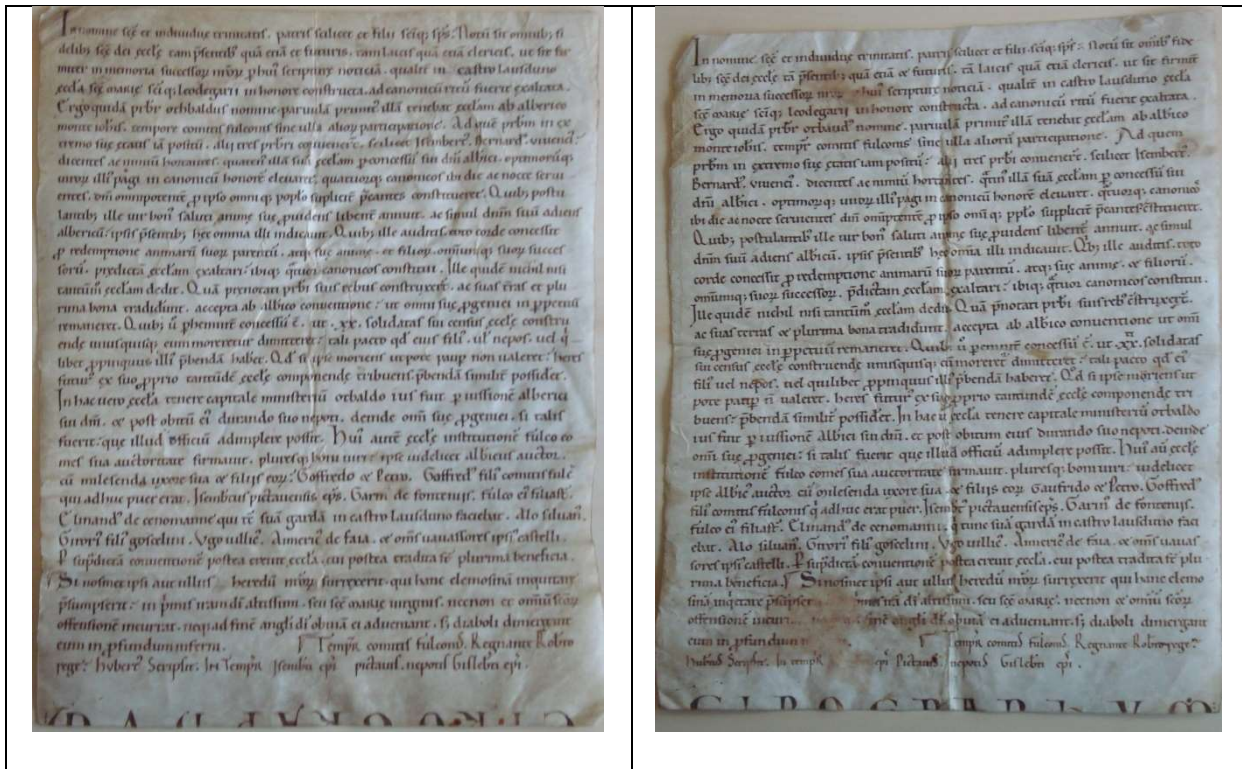 In nomine sc̄ę et indiuiduę trinitatis. patris scilicet et filii sc̄iq; sp̄s. Notū sit omnib; fi
delib; sc̄ę dei ęccłę tam p̄sentib; quā etiā et futuris. tam laicis quā etiā clericis. ut sit fir
miter in memoria successoꝝ nr̄oꝝ p̱ huiꝰ scripturę noticiā. qualit̄ in castro lausduno
ęccła sc̄ę marię sc̄iq; leodegarii in honore constructa. ad canonicū ritū fuerit ęxaltata.
Ergo quidā prb̄r orbaldus nomine paruulā primit̄ illā tenebat ęccłam ab alberico
monte iohis. tempore comitis fulconis sine ulla alioꝝ participatione. Ad quē prb̄m in ex
tremo suę ęxitus iā positū. alij tres prb̄ri conuenerē. scilicet Isemberꝰ. Bernardꝰ. uiuenciꝰ.
dicentes ac nimiū hortantes. quatin̄ illā suā ęccłam p̱ concessū sui dn̄i alb̄ici. optimorūq;
uiroꝝ illiꝰ pagi in canonicū honorē eleuaret. quatuorq; canonicos ibi die ac nocte serui
entes. dm̄ omnipotentē ꝓ ipso omniq; poplo suplicit̄ p̄cantes construeret. Quib; postu
lantib; ille uir bonꝰ saluti animę suę ꝓuidens libent̄ annuit. ac simul dnm̄ suū adiens
albericū. ipsis p̄sentib; hęc omnia illi indicauit. Quib; ille auditis. toto corde concessit
ꝓ redemptione animarū suoꝝ parentū. atq; suę animę. et filioꝝ. omniumq; suoꝝ succes
sorū. predictā ęccłam ęxaltari. ibiq; q̄tuor canonicos construi. Ille quidē nichil nisi
tantūm ęccłam dedit. Quā prenotati prb̄ri suis rebus construxerē. ac suas tr̄as et plu
rima bona tradidunt. accepta ab alb̄ico conuentione. ut omni suę ꝓgeniei in p̱petuū
remaneret. Quib; ū p̱hemnit̄ concessū ē. ut .xx. solidatas sui census ęccłę constru
endę unusquisq; cum moreretur dimitteret. tali pacto qđ eiꝰ filiꝰ. ul̄ nepos. uel q̄
liber ꝓpinquus illiꝰ p̄bendā haberet. Qđ si ipse moriens ut pote paup̱ non ualeret. heres
futurꝰ ex suo ꝓprio tantūdē ęccłę componendę tribuens. p̄bendā similit̄ possidet.
In hac uero ęccła tenere capitale ministeriū orbaldo ius fuit p̱ iussionē alberici
sui dn̄i. et post obitū eiꝰ durando suo nepoti. deinde omi suę ꝓgeniei. si talis
fuerit. que illud officiū adimplere possit. Huiꝰ autē ęccłę institutionē fulco co
mes sua auctoritate firmauit. pluresq; boni uiri. ipse uidelicet albicus auctor.
cū milesenda uxore sua et filijs eoꝝ. Goffredo et Petro. Goffredꝰ filiꝰ comitis fulc̄
qui adhuc puer erat. Isemb̄tus pictauensis ep̄s. Garinꝰ de fontenijs. fulco eiꝰ filiastꝰ.
Elinandꝰ de cenomanne qui tc̄ suā gardā in castro lausduno faciebat. Alo siluanꝰ.
Girorꝰ filiꝰ goscelini. Vgo uilliēꝰ. Americꝰ de faia. et om̄s uauassores ipsiꝰ castelli.
P̱ sup̄dictā conuentionē postea creuit ęccła. cui postea tradita s̄t plurima beneficia.
Si nosmet ipsi aut ullus heredū nr̄oꝝ surrexerit. qui hanc elemosinā inquirare
p̄sumpserit. in p̄mis iram dī altissimi. seu sc̄ę marię uirginis. necnon et omniū sc̄oꝝ
offensionē incurrat. neq; ad finē angli dī obuiā ei adueniant. s; diaboli dimergant
eum in ꝓfundum inferni. Tempr̄ comitis fulconis. Regnante Rotb̄to
rege. Hubertꝰ Scripsit. In Tempr̄ Isemb̄ti ep̄i pictauis. nepotis Gisleb̄ti ep̄i.
CIROGRAPHVM
In nomine sc̄ę et indiuiduę trinitatis. patris scilicet et filii. sc̄iq; sp̄s. Notū sit omib; fide
lib; sc̄ę dei ęccłę tā p̄sentib; quā etiā et futuris. tā laicis quā etiā clericis. ut sit firmit̄
in memoria successoꝝ nr̄oꝝ huiꝰ scripturę noticiā. qualit̄ in castro lausduno ęccła
sc̄ę marię sc̄iq; leodegarii in honore constructa. ad canonicū ritū fuerit ęxaltata.
Ergo quidā prb̄r orbaudꝰ nomine. paruulā primit̄ illā tenebat ęccłam ab alb̄ico
monte iohis. tempr̄ comitis fulconis. sine ulla aliorū participatione. Ad quem
prb̄m in extremo suę ęxitus iam positū. alij tres prb̄ri conuenerē. scilicet Isemberꝰ.
Bernardꝰ. uiuenciꝰ. dicentes ac nimiū hortantes. q̄tinꝰ illā suā ęccłam p̱ concessū sui
dn̄i alb̄ici. optimorūq; uiroꝝ illiꝰ pagi in canonicū honorē eleuaret. q̄tuorq; canonicos
ibi die ac nocte seruientes dm̄ omp̄tentē ꝓ ipso om̄iq; pplo supplicit̄ p̄cantes c̄strueret.
Quib; postulantib; ille uir bonꝰ saluti animę suę ꝓuidens libent̄ annuit. ac simul
dnm̄ suū adiens alb̄icū. ipsis p̄sentib; hęc omnia illi indicauit. Qb; ille auditis. toto
corde concessit ꝓ redemptione animarū suoꝝ parentū. atq; suę animę. et filiorū.
omniumq; suoꝝ successoꝝ. p̄dictam ęccłam ęxaltari. ibiq; q̄tuor canonicos construi.
Ille quidē nichil nisi tantūm ęccłam dedit. Quā p̄notati prb̄ri suis reb; c̄struxerē.
ac suas terras et plurima bona tradidunt. accepta ab alb̄ico conuentione ut omi
suę ꝓgeniei in p̱petuū remaneret. Quib; ū p̱emnit̄ concessū ē. ut .xx. solidatas
sui census ęccłę construendę unusquisq; cū moreret̄ dimitteret. tali pacto qđ eiꝰ
filiꝰ uel nepos. uel quilibet ꝓpinquus illiꝰ p̄bendā haberet. Qđ si ipse moriens ut
pote paup̱ n̄ ualeret. heres futurꝰ ex suo ꝓprio tantūdē ęccłę componendę tri
buens. p̄bendā similit̄ possidet. In hac ū ęccła tenere capitale ministeriū orbaldo
ius fuit p̱ iussionē Albici sui dn̄i. et post obitum eius durando suo nepoti. deinde
omi suę ꝓgeniei. si talis fuerit que illud officiū adimplere possit. Huiꝰ aū ęccłę
institutionē fulco comes sua auctoritate firmauit. pluresq; boni uiri. uidelicet
ipse Albicꝰ auctor cū milesenda uxore sua. et filijs eoꝝ Gaufrido et Petro. Goffredꝰ
filiꝰ comitis fulconis q̄ adhuc erat puer. Isemb̄tꝰ pictauensis ep̄s. Garinꝰ de fontenijs.
fulco eiꝰ filiastꝰ. Elinandꝰ de cenomannis q̄ tunc suā gardā in castro lausduno faci
ebat. Alo siluanꝰ. Girorꝰ filiꝰ goscelini. Vgo uilliēꝰ. Americꝰ de faia. et om̄s uauas
sores ipsi castelli. P̱ sup̄dictā conuentionē postea creuit ęccła. cui postea tradita s̄t plu
rima beneficia. Si nosmet ipsi aut ullus heredū nr̄oꝝ surrexerit qui hanc elemo
sinā inquirare p̄su͞pserit. mis irā dī altissimi. seu sc̄ę marię. necnon et omiū sc̄oꝝ
offensionē incurr finē angli dī obuiā ei adueniant. s; diaboli dimergant
eum in ꝓfundum Tempr̄ comitis fulconis. Regnante Rotb̄to rege.
Hubtus Scripsit. In tempr̄ ep̄i Pictauis. nepotis Gisleb̄ti ep̄i.
CIROGRAPHVM